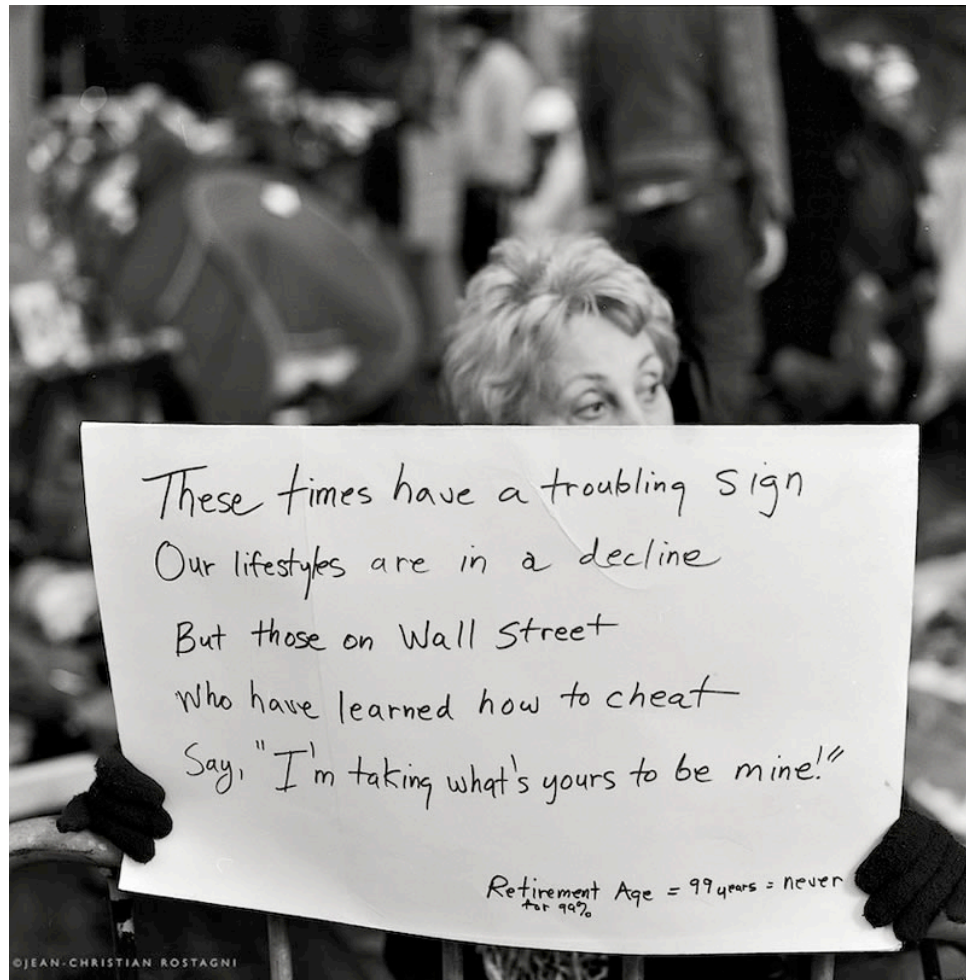 These times have a troubling sign
Our lifestyles are in a decline
But those on Wall Street
Who have learned how to cheat
Say, "I'm taking what's yours to be mine!"
Retirement Age = 99 years = never
for 99%
©JEAN-CHRISTIAN ROSTAGNI